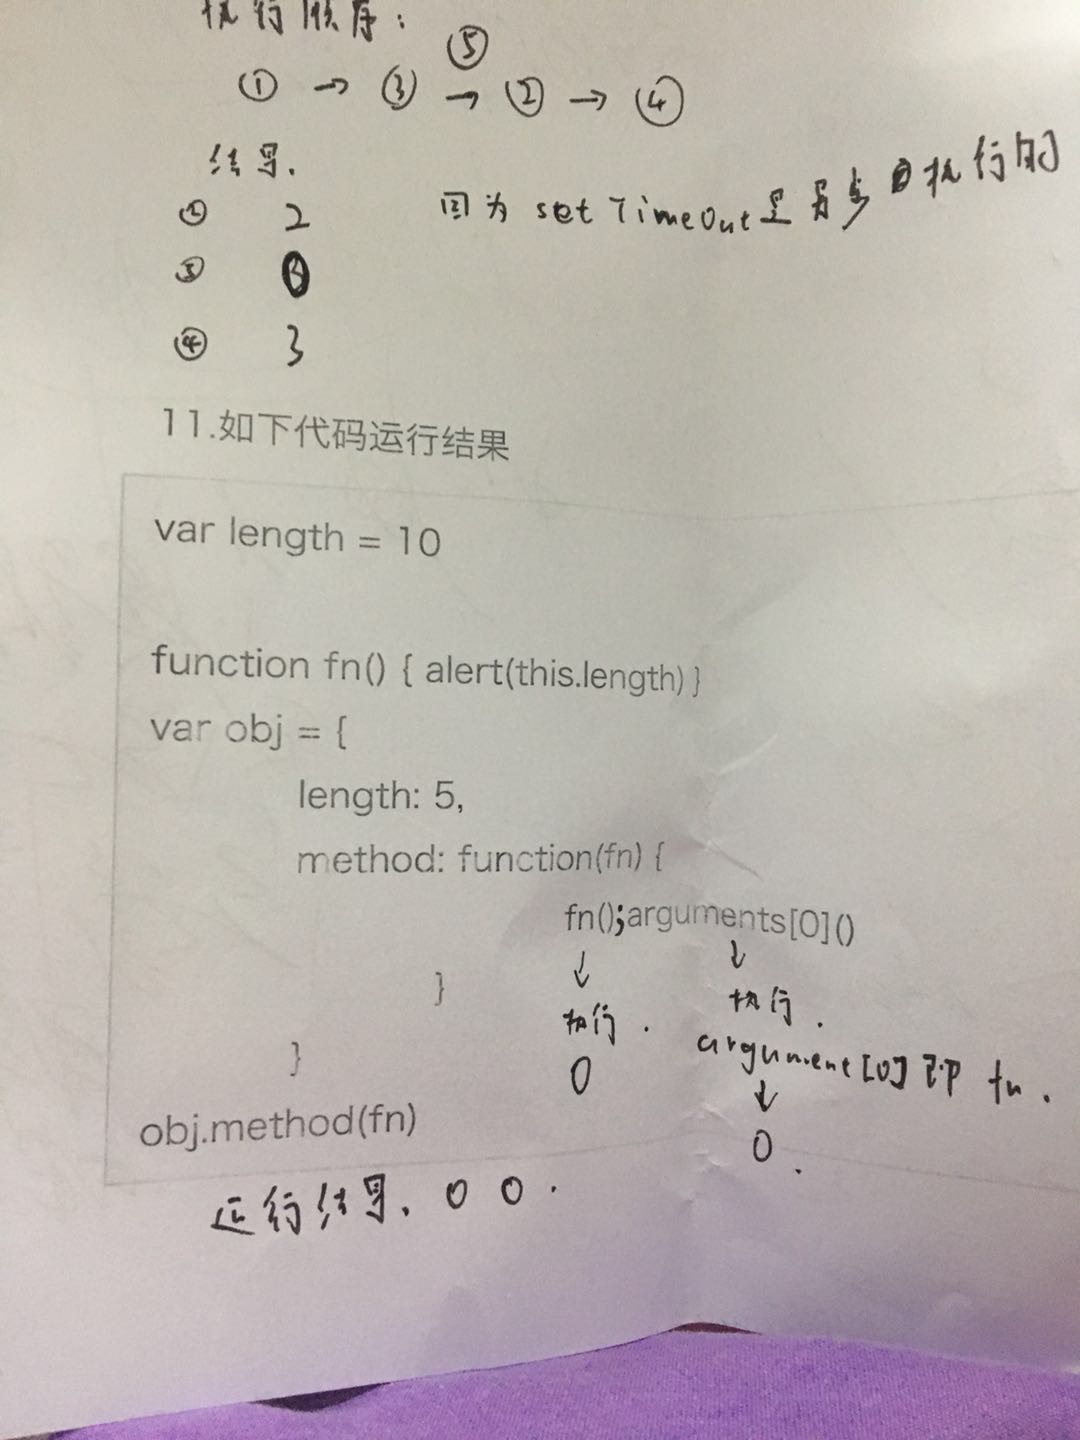 执行顺序:
⑤
① → ③ → ② → ④
结果.
② 2
因为 setTimeOut是异步执行的
③
④ 3
11.如下代码运行结果
var length = 10
function fn() { alert(this.length) }
var obj = {
length: 5,
method: function(fn) {
fn();arguments[0]()
↓ ↓
}
执行. 执行.
0 argument[0]即 fn.
}
↓
obj.method(fn)
0.
运行结果. 0 0.